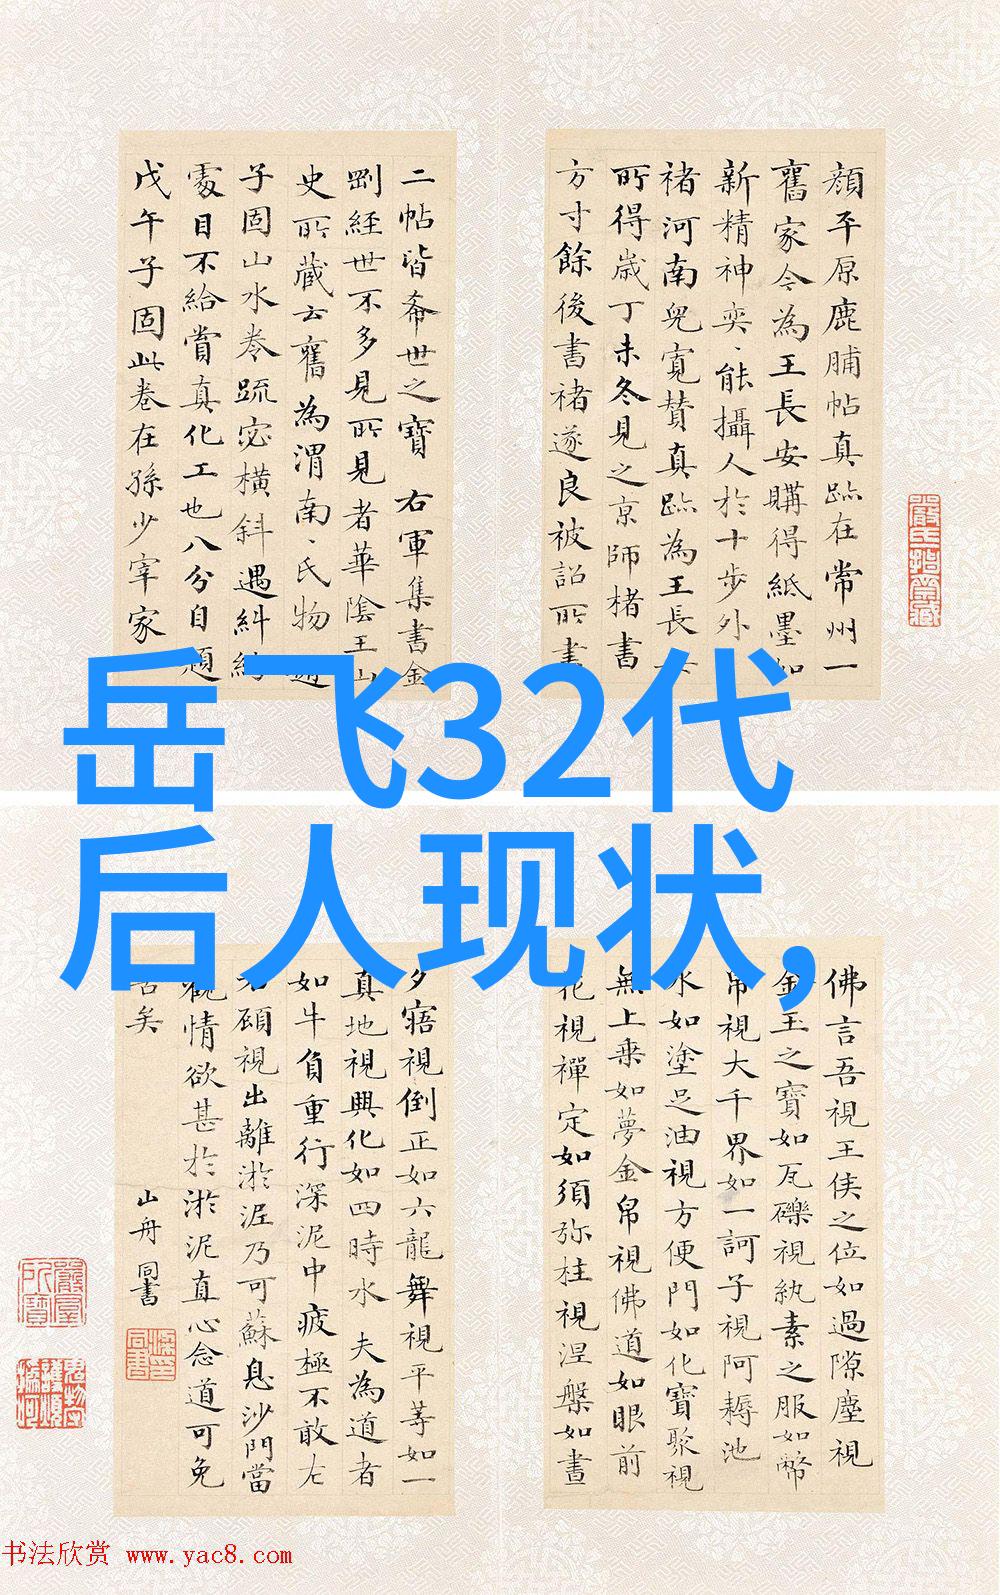 顔平原鹿脯帖真跡在常州一
舊家今為王長安購得紙墨如
新精神奕、能攝人於十步外
褚河南兒寬贊真跡為王長
所得歲丁未冬見之京師楮書
方寸餘後書褚遂良被詔所書
二帖皆希世之寶 右軍集書金
剛經世不多見所見者華陰王山
史所藏云舊為渭南、氏物
子固山水卷疏密橫斜遇糾紛
處目不給賞真化工也八分自題
戊午子固此卷在孫少宰家
岳飞32代
后人现状,
佛言吾視王侯之位如過隙塵視
金玉之寶如瓦礫視紈素之服如幣
帛視大千界如一訶子視阿耨池
水如塗足油視方便門如化寶聚視
無上乘如夢金帛視佛道如眼前
花視禪定如須弥柱視涅槃如晝
夕寤視倒正如六龍舞視平等如一
真地視興化如四時水 夫為道者
如牛負重行深泥中疲極不敢左
右顧視出離淤泥乃可蘇息沙門當
觀情欲甚於淤泥直心念道可免
苦矣 山舟 同書
书法欣赏 www.yac8.com